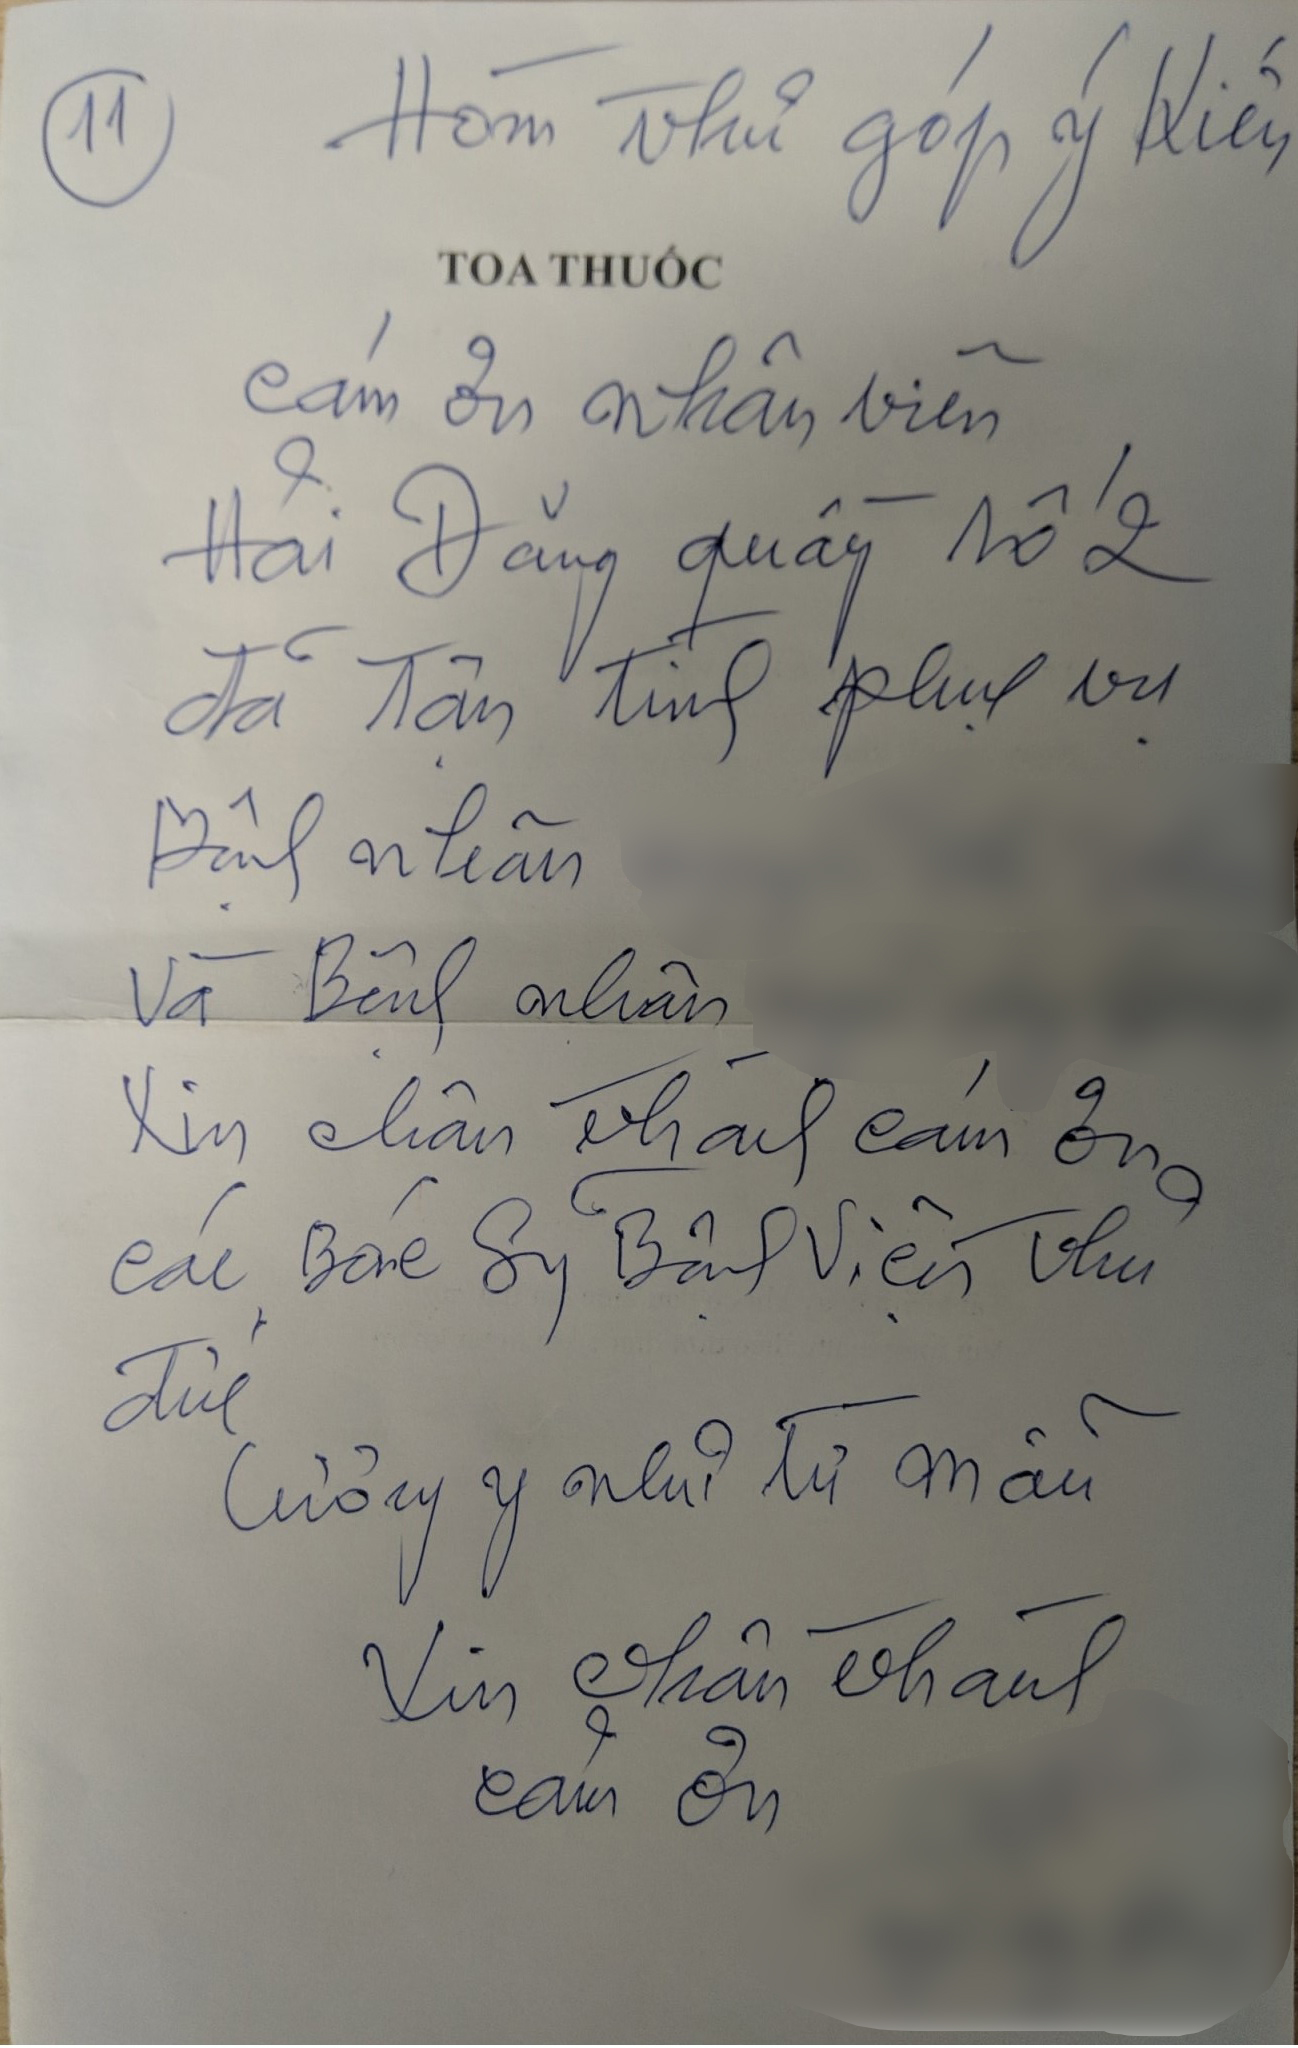 11
Hòm thư góp ý Kiến
TOA THUỐC
cám ơn nhân viên
Hải Đăng quầy số 2
đã Tận tình phục vụ
Bệnh nhân
Và Bệnh nhân
Xin chân thành cám ơn
các Bác Sỹ Bệnh Viện Thủ
đức
Lương y như từ mẫu
Xin chân thành
cảm ơn